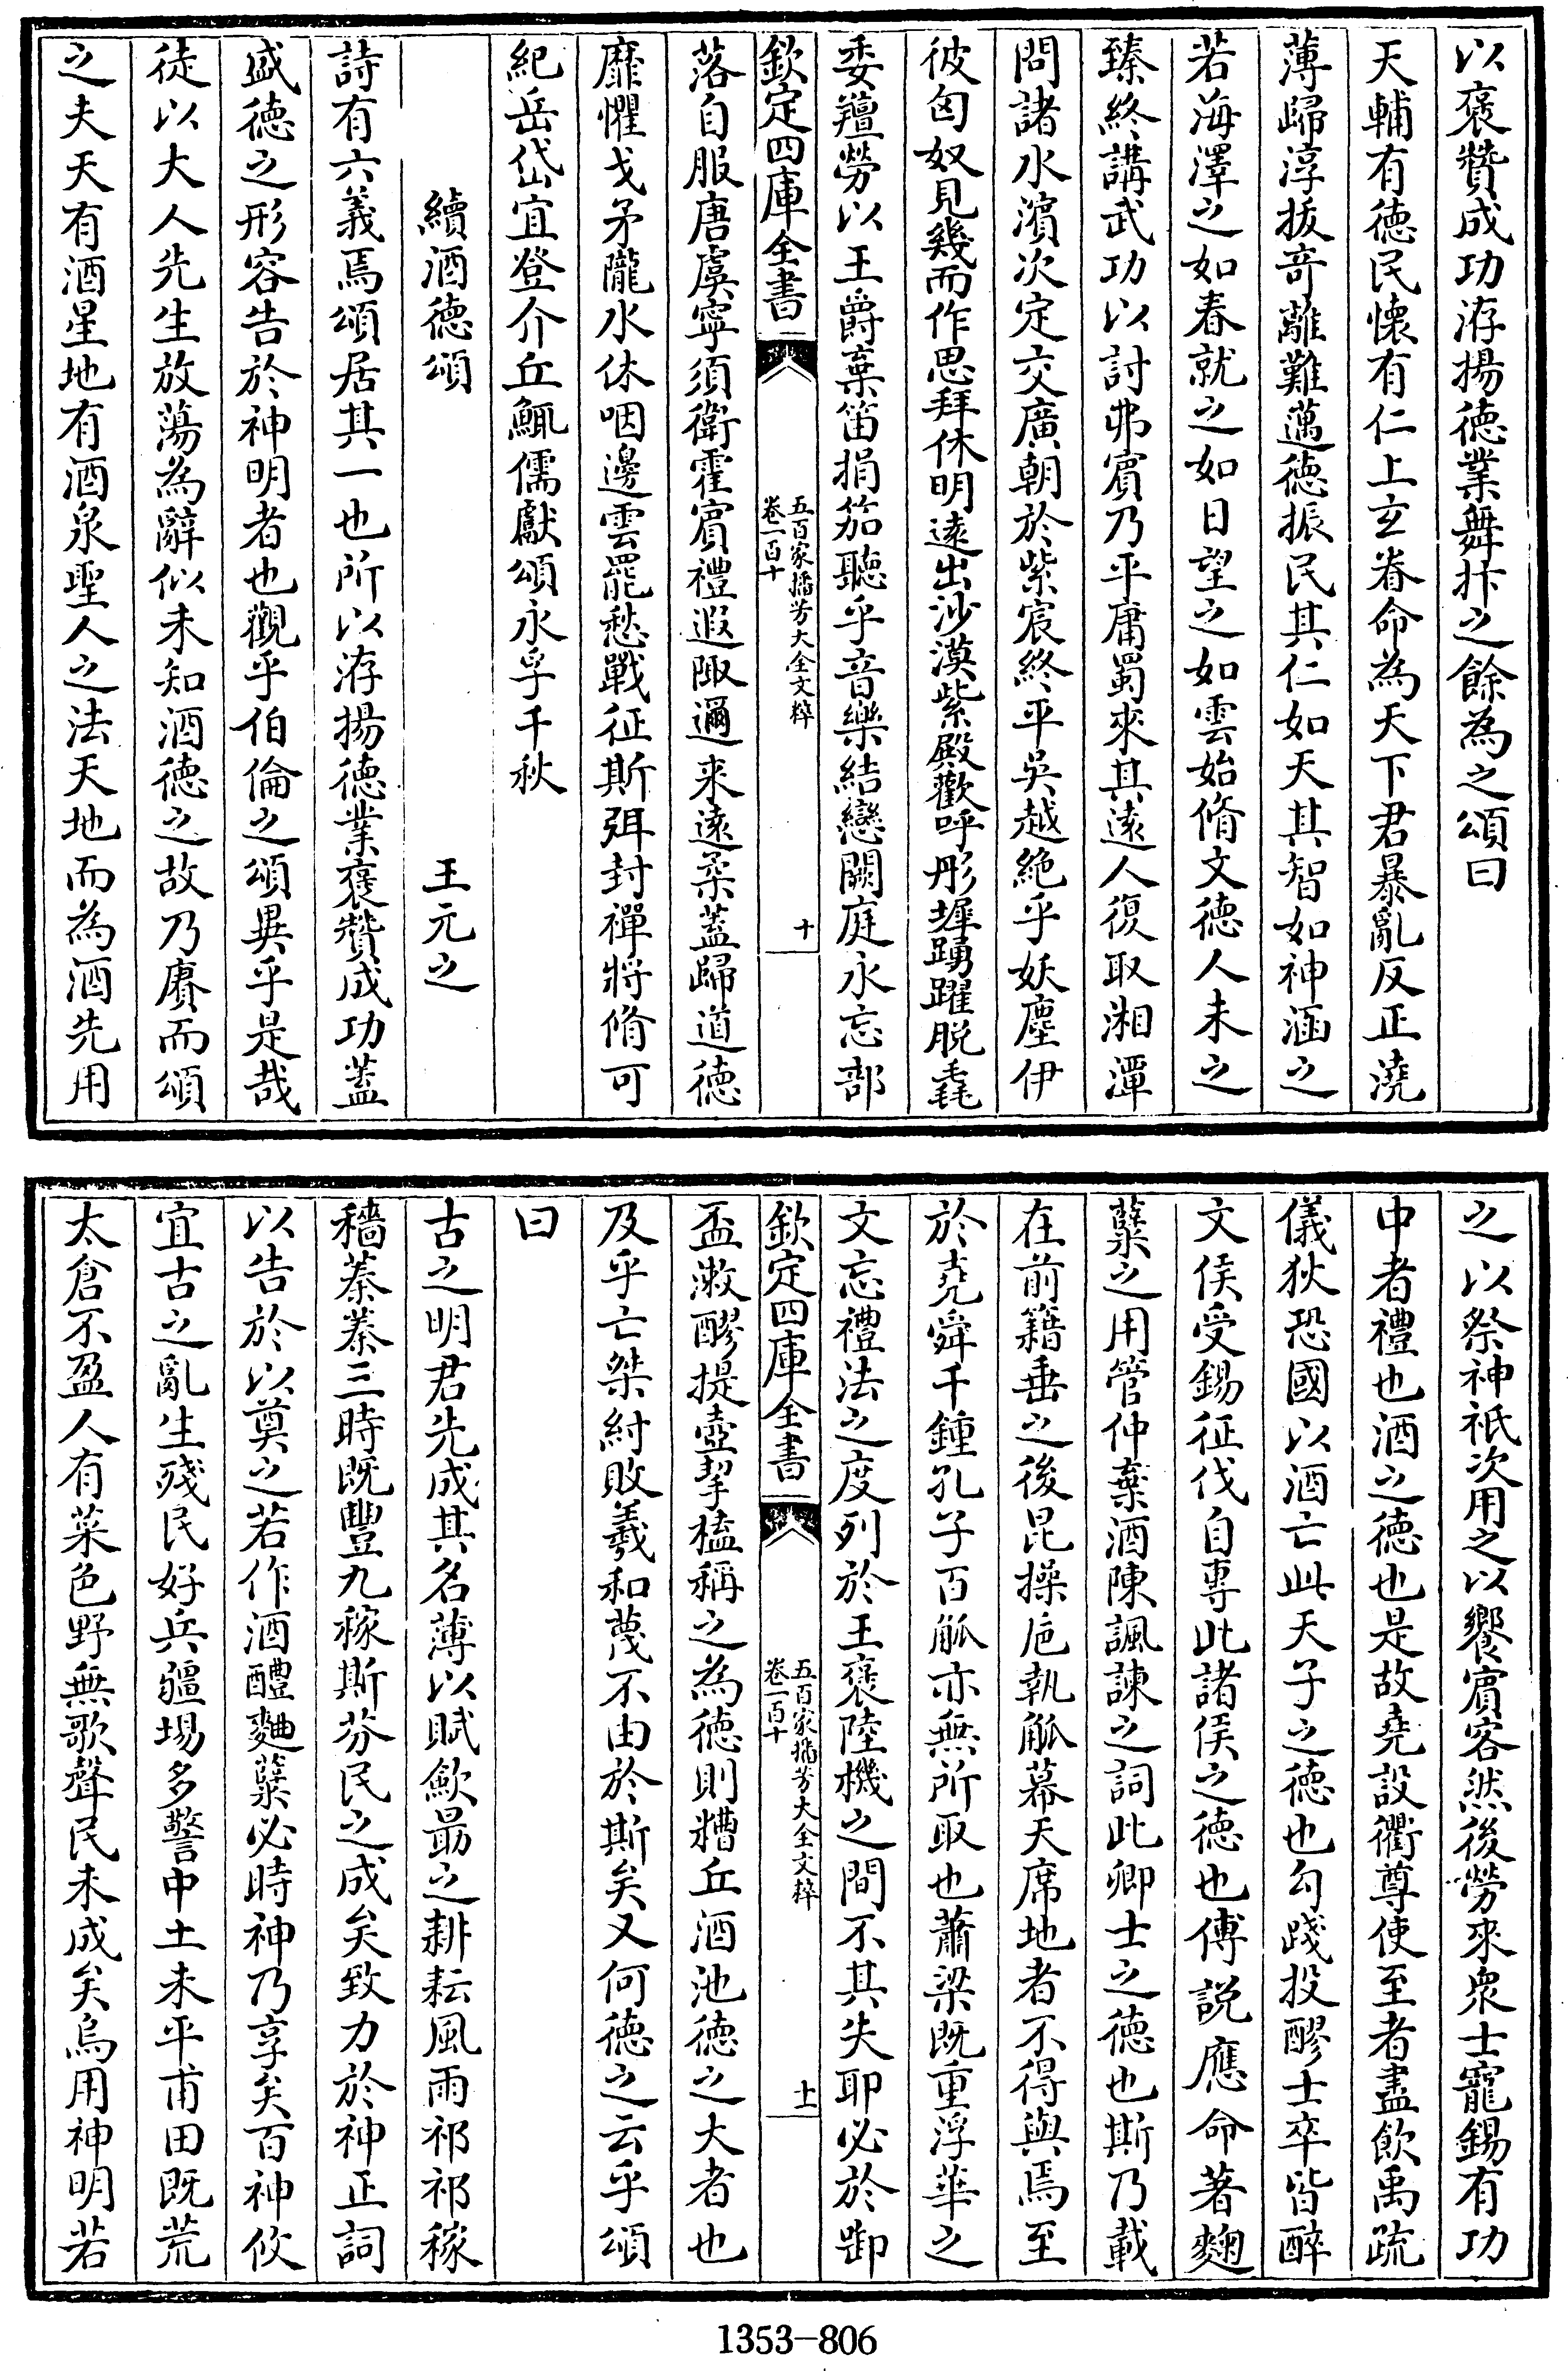 以褒贊成功洊揚德業舞抃之餘為之頌曰
天輔有德民懷有仁上玄眷命為天下君暴亂反正澆
薄歸淳拔竒離難邁德振民其仁如天其智如神涵之
若海澤之如春就之如日望之如雲始脩文德人未之
臻終講武功以討弗賓乃平庸蜀來其遠人復取湘潭
問諸水濱次定交廣朝於紫宸終平吳越絶乎妖塵伊
彼匈奴見幾而作思拜休明遠出沙漠紫殿歡呼彤墀踴躍脫毳
委羶勞以王爵棄笛捐笳聽乎音樂結戀闕庭永忘部
欽定四庫全書
五百家播芳大全文粹
卷一百十
十
落自服唐虞寧須衛霍賓禮遐陬邇来遠柔蓋歸道德
靡懼戈矛隴水休咽邊雲罷愁戰征斯弭封禪將脩可
紀岳岱宜登介丘鯫儒獻頌永孚千秋
續酒德頌
王元之
詩有六義焉頌居其一也所以洊揚德業褒贊成功蓋
盛德之形容告於神明者也觀乎伯倫之頌異乎是哉
徒以大人先生放蕩為辭似未知酒德之故乃賡而頌
之夫天有酒星地有酒泉聖人之法天地而為酒先用
之以祭神祇次用之以饗賓客然後勞來衆士寵錫有功
中者禮也酒之德也是故堯設衢尊使至者盡飲禹疏
儀狄恐國以酒亡此天子之德也勾踐投醪士卒皆醉
文侯受錫征伐自專此諸侯之德也傅説應命著麴
糵之用管仲棄酒陳諷諫之詞此卿士之德也斯乃載
在前籍垂之後昆操巵執觚幕天席地者不得與焉至
於堯舜千鍾孔子百觚亦無所取也蕭梁既重浮華之
文忘禮法之度列於王褒陸機之間不其失耶必於啣
欽定四庫全書
五百家播芳大全文粹
卷一百十
十一
盃漱醪提壺挈榼稱之為德則糟丘酒池德之大者也
及乎亡桀紂敗羲和蔑不由於斯矣又何德之云乎頌
曰
古之明君先成其名薄以賦歛最之耕耘風雨祁祁稼
穡蓁蓁三時既豐九稼斯芬民之成矣致力於神正詞
以告於以奠之若作酒醴麯糵必時神乃享矣百神攸
宜古之亂生殘民好兵疆埸多警中土未平甫田既荒
太倉不盈人有菜色野無歌聲民未成矣烏用神明若
1353-806